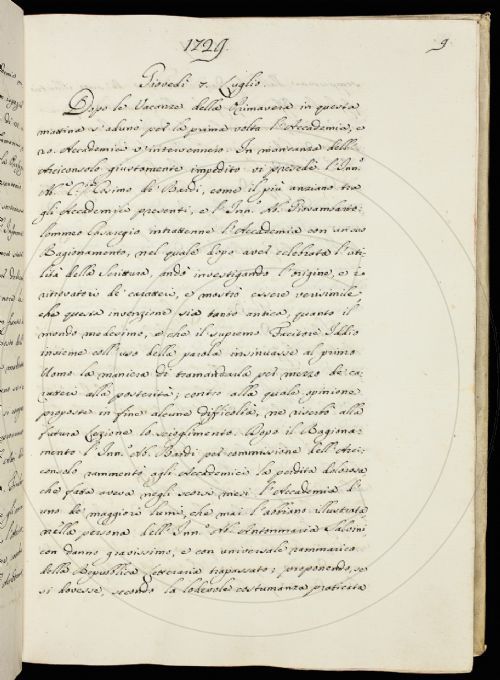 1729.
9.
Giovedì 7. Luglio.
Dopo le Vacanze della Primavera in questa
mattina s'adunò per la prima volta l'Accademia, e
20. Accademici v'intervennero. In mancanza dell'
Arciconsolo giustamente impedito vi presedè l'Inn.º
Ab.e de' Bardi, come il più anziano tra
gli Accademici presenti, e l'Inn.º Ab. Giovambarto-
lommeo Casaregio intrattenne l'Accademia con un suo
Ragionamento, nel quale dopo aver celebrata l'uti-
lità della Scrittura, andò investigando l'origine, e
ritrovatori de' caratteri, e mostrò essere verisimile,
che questa invenzione sia tanto antica, quanto il
mondo medesimo, e che il supremo Facitore Iddio
insieme coll'uso della parola insinuasse al primo
Uomo la maniera di tramandarla per mezzo de' ca-
ratteri alla posterità; contro alla quale opinione
proposte in fine alcune difficoltà, ne riserbò alla
futura Lezione lo scioglimento. Dopo il Ragiona-
mento l'Inn.º Ab. Bardi per commissione dell'Arci-
consolo rammentò agli Accademici la perdita dolorosa
che fatta aveva negli scorsi mesi l'Accademia d'
uno de' maggiori lumi, che mai l'abbiano illustrata,
nella persona dell'Inn.º Ab. Antommaria Salvini
con danno gravissimo, e con universale rammarico
della Repubblica Letteraria trapassato; proponendo, se
si dovesse, secondo la lodevole costumanza praticata